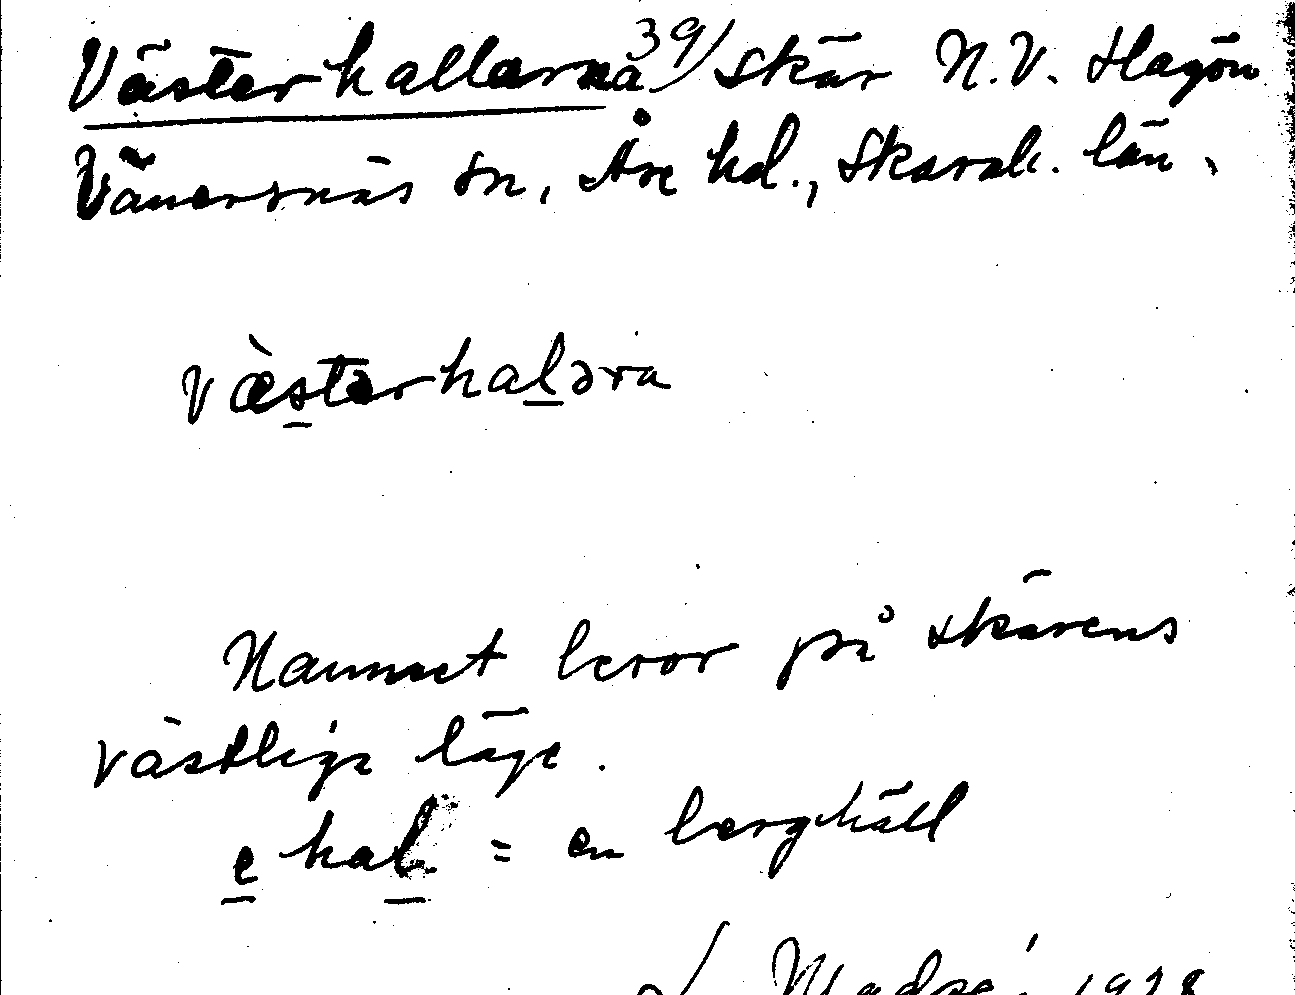 Västerhallarna 39/ skär N.V. Hagön
Vänersnäs sn, Åse hd., Skarab. län.
væ̀stərhaləra
Namnet beror på skärens
västliga läge.
e hal = en berghäll
1928